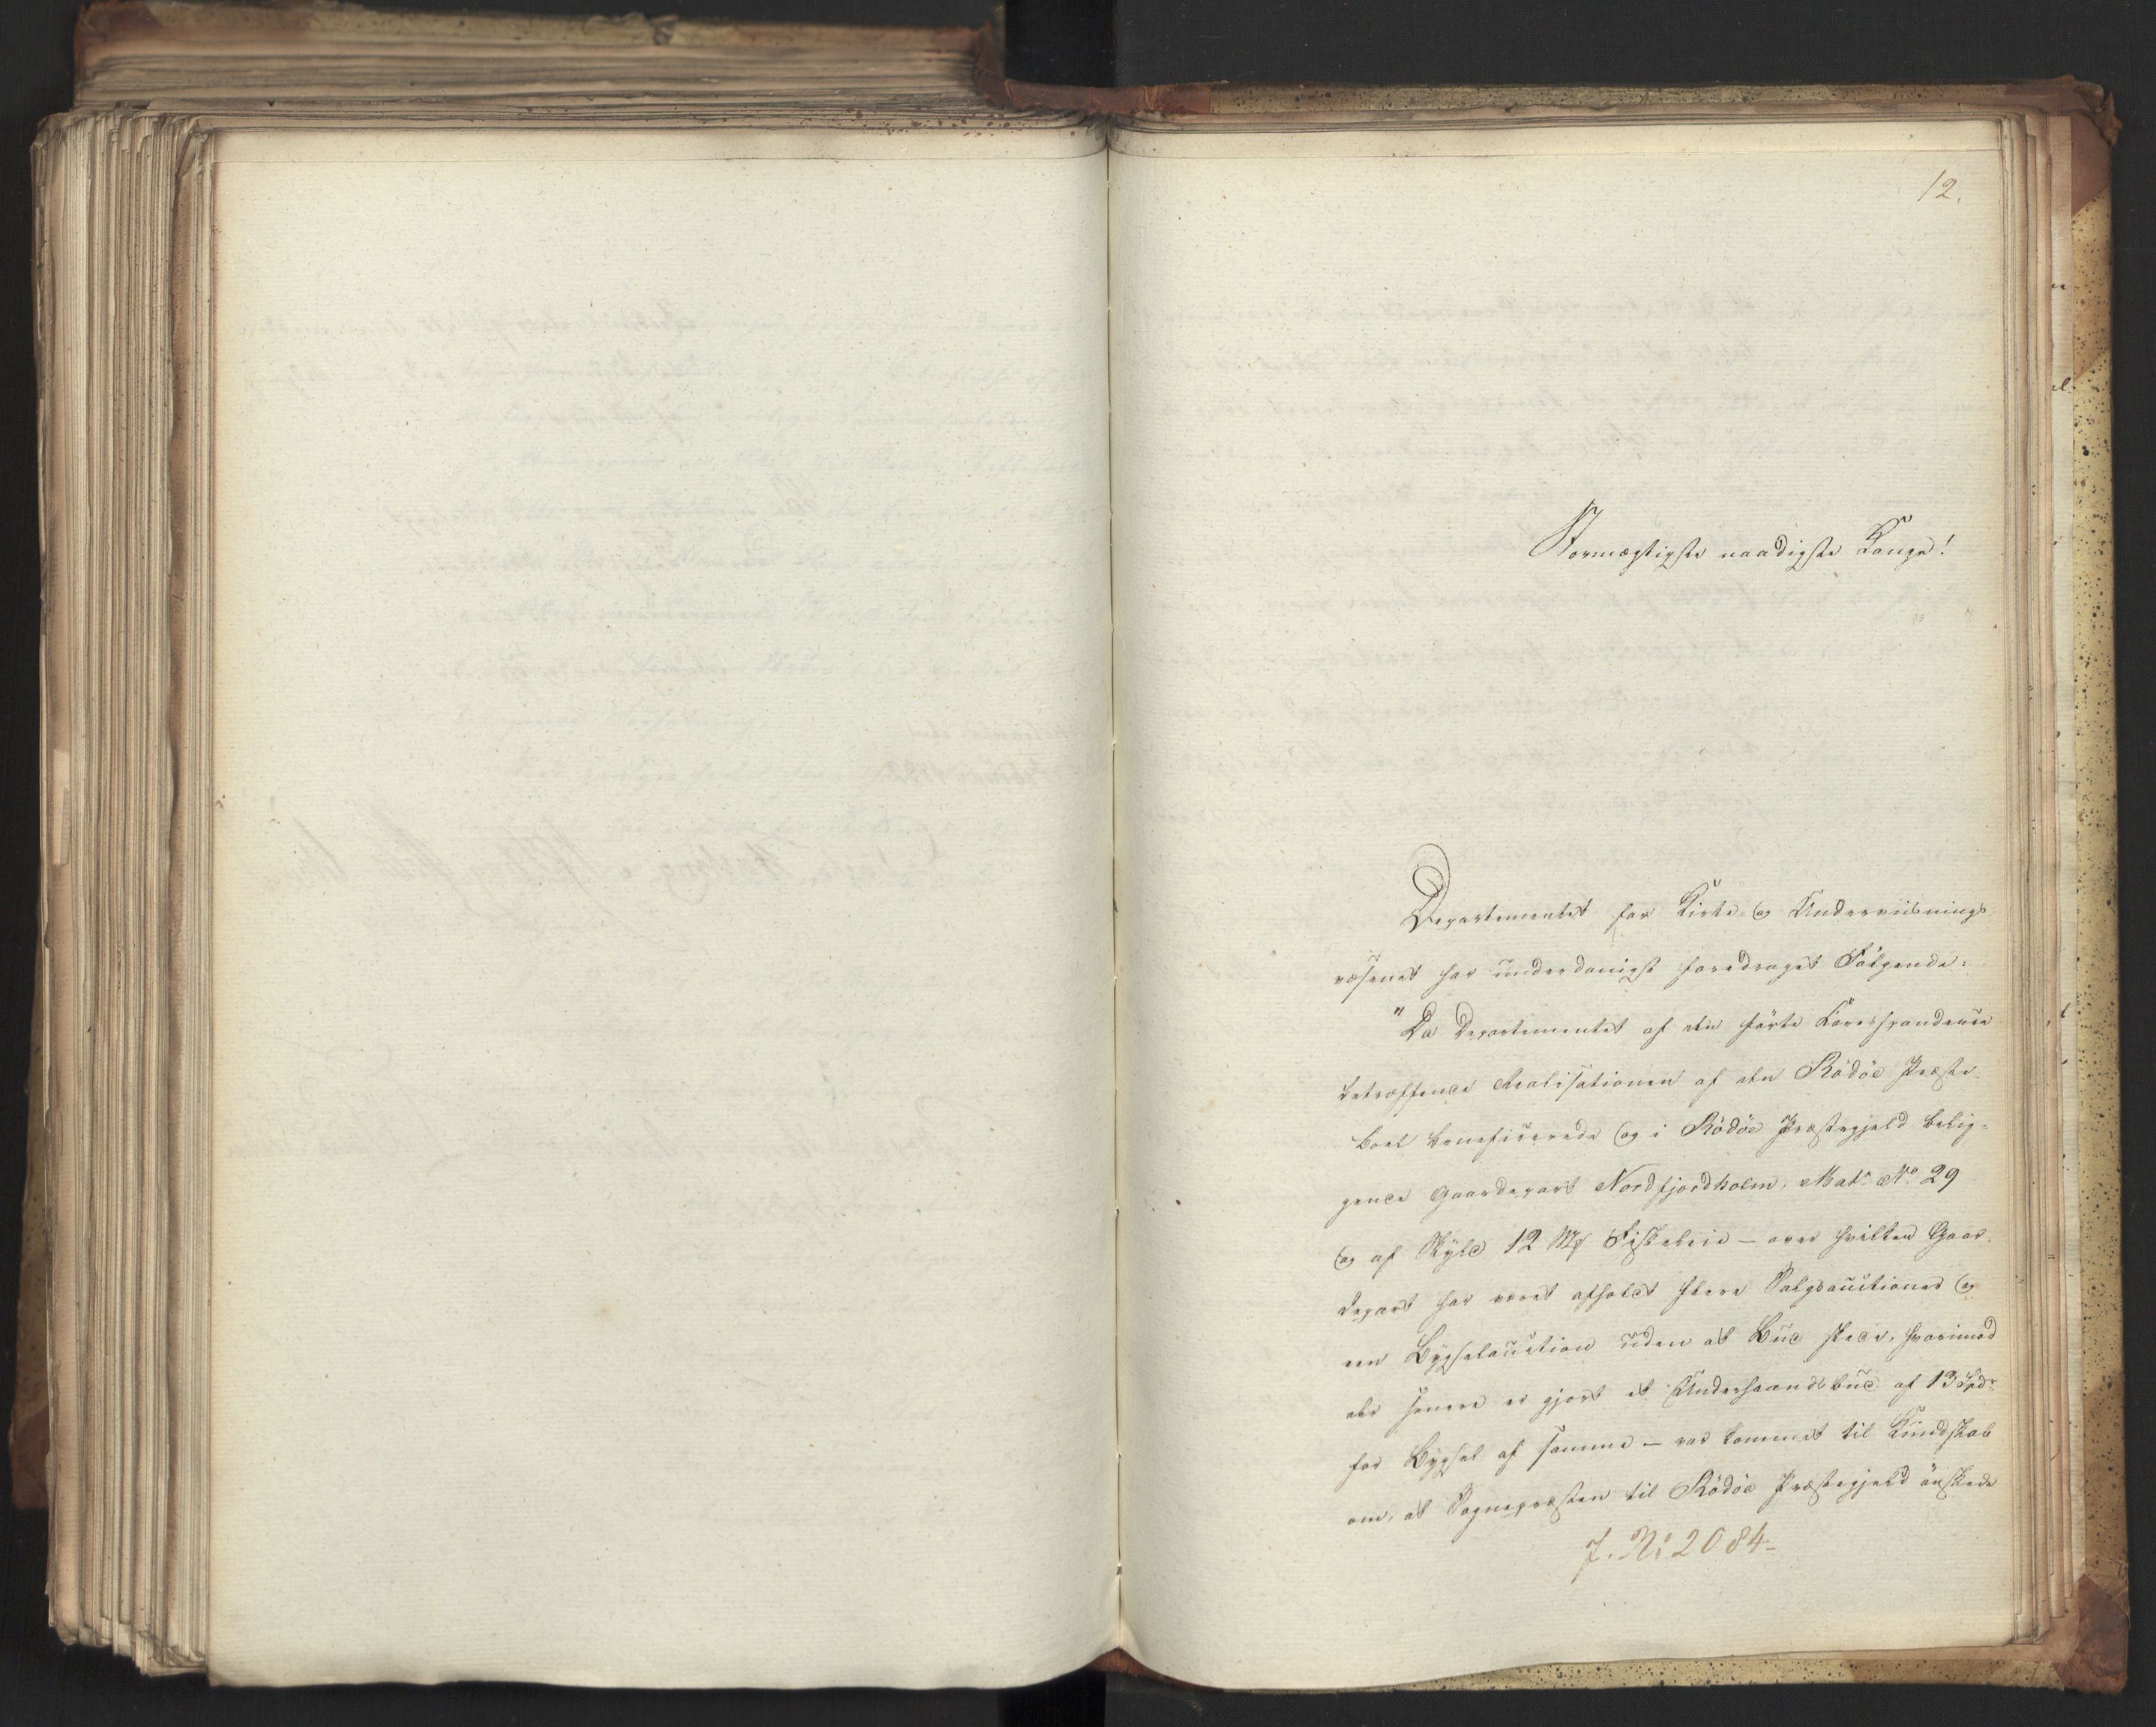 12.
Stormægtigste naadigste Konge!
Departementet for Kirke- og Underviisnings
væsenet har underdanigst foredraget Følgende:
"Da Departementet af den førte Korrespondence
betræffende Realisationen af den Rödöe Præste-
boel beneficerede og i Rödöe Præstegjeld belig-
gende Gaardepart Nordfjordholm, Matr. No 29
og af Skyld 12 Mk Fiskeleie – over hvilken Gaar-
depart har været afholdt flere Salgsauctioner og
een Bygselauction uden at Bud skede, hvorimod
der senere er gjort et Underhaandsbud af 13 Spdr
for Bygsel af samme – var kommet til Kundskab
om, at Sognepræsten til Rödöe Præstegjeld önskede
J. No 2084-